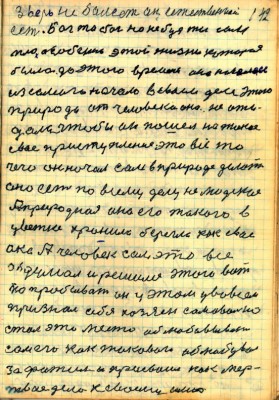 Зверь не боится он естественный
есть. Бог то бог но небуд ты сам
тло, особенно этой жизни которая
была до этого времени она
из самого начало в своём деле этого
природа от человека она не ожи-
дала чтобы он пошел на такое
свое приступление это всё то
чего он начал сам в природе делать
оно есть по всему делу не людское
А природная она его такого в
цветке хранила берегла как свое
око А человек сам это все
здумал и решил этого
попробывать он у этом убовсем
признал себя хозяин самовольно
стал это место облюбовывать
самого как такового
за хватил и присвоил как мер-
твое дело к своему